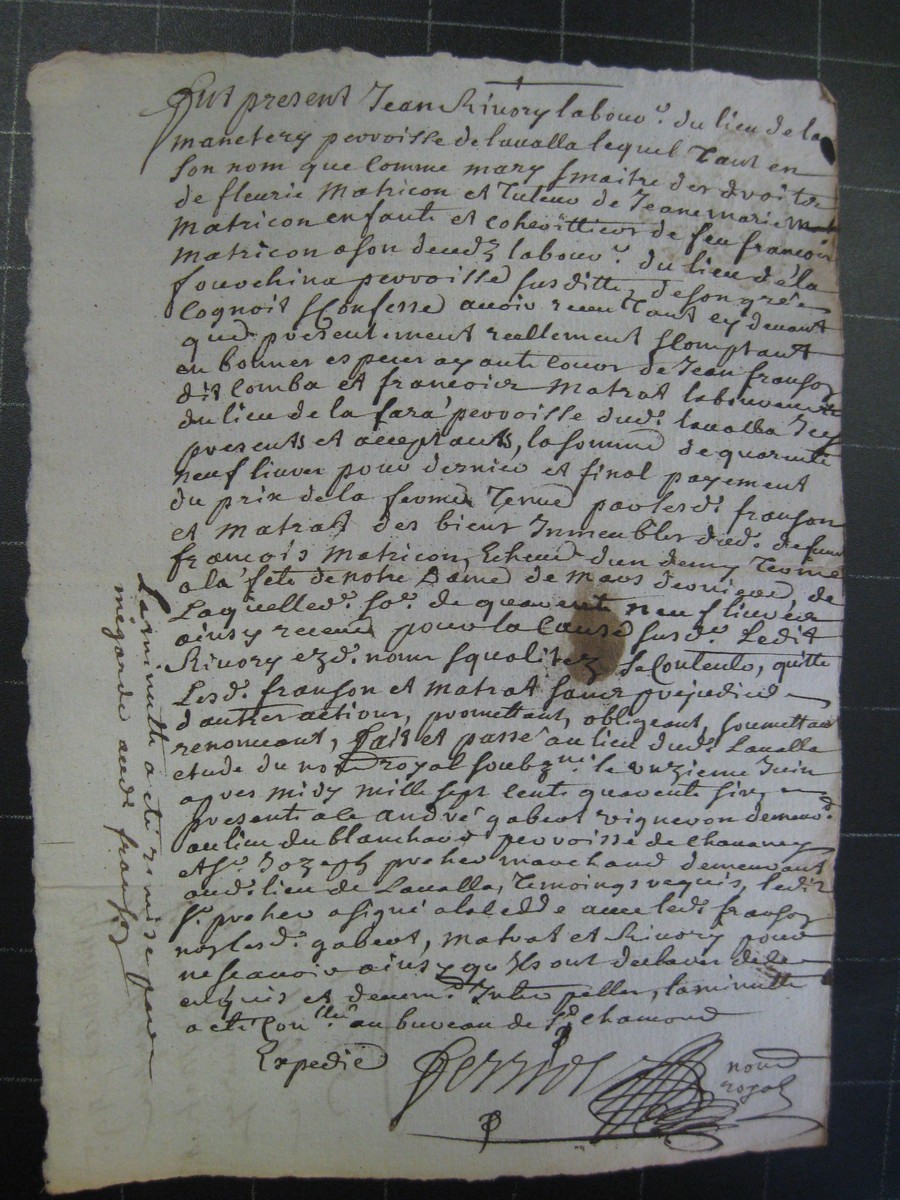 fut present Jean Rivory labour. du lieu de la
manetery parroisse de lavalla lequel tant en
son nom que comme mary & maitre des droits
de fleurie Matricon et tuteur de Jeanne marie
Matricon enfants et cohérittiers de feu francois
Matricon a son decedz labour. du lieu de la
fouchina parroisse susditte, de son gré
cognoit & Confesse avoir receu tant cy devant
que présentement reellement & Comptant
en bonnes especes ayants cours de Jean franson
dit Comba et francois Matrat laboureurs
du lieu de la fara parroisse dud. lavalla Icy
presents et acceptants, la somme de quarente
neuf livres pour dernier et final payement
du prix de la ferme tenue par lesd. franson
et Matrat des biens Immeubles dud. defunt
francois Matricon, Echeu d'un demy terme
a la féte de notre Dame de mars dernière de
Laquelle d. so. de quarente neuf livres
ainsy receue pour la Cause susd. Ledit
Rivory ezd. noms & qualitez Se Contente, quitte
Lesd. franson et matrat sans préjudice
d'autres actions, promettant, obligeant, soumettant
renoncant, fait et passé au lieu dud. Lavalla
etude du no.re royal soubz.né le onzieme Juin
apres midy mille sept cents quarente six, en
presence de André gabert vigneron demeur.
au lieu du blanchard parroisse de Chavaney
et Sr. Jozeph preher marchand demeurant
aud. lieu de Lavalla, temoings requis, ledit
Sr. preher a signé a la cedde avec led. franson
non lesd. gabert, matrat et Rivory pour
ne scavoir ainsy qu'Ils ont declaré de ce
enquis et deuem.t Inter pellés, la minutte
a eté Con.llée au bureau de St. Chamond
Expedié
nore
royal
La minutte a eté remise par
mégarde aud. franson